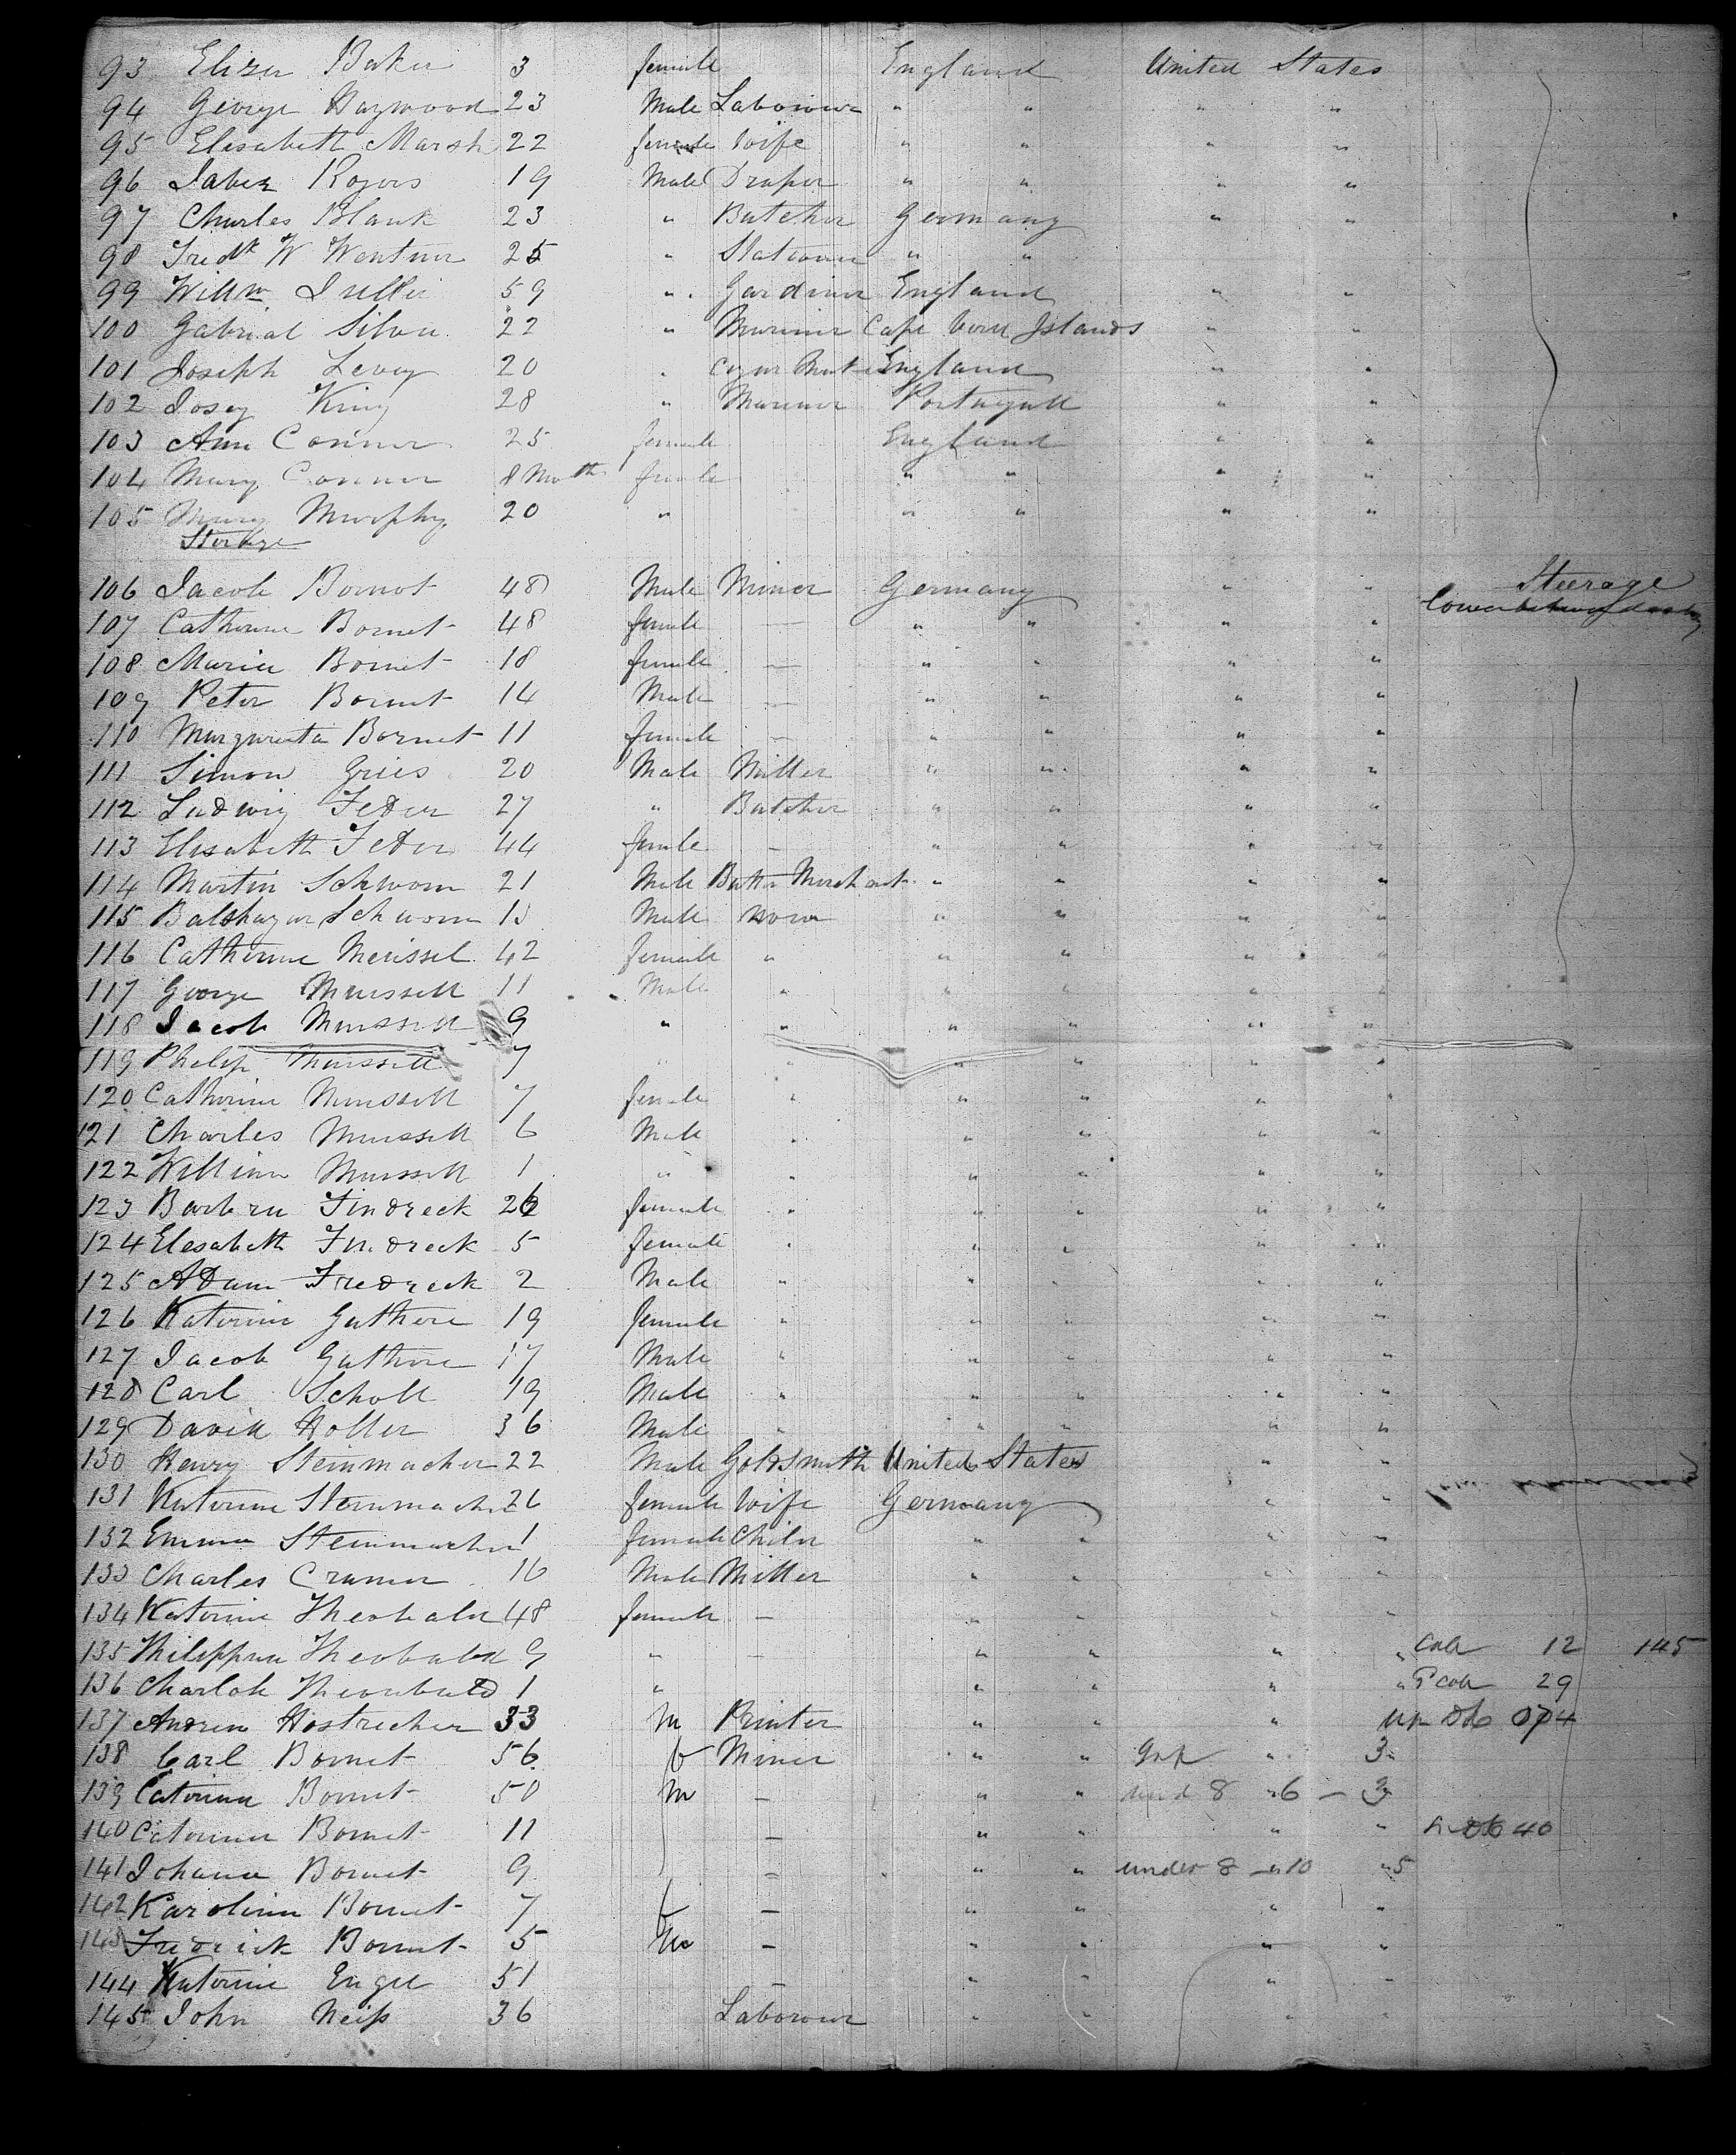 93 Eliza Baker 3 female England United States
94 George Haywood 23 Male Labourer " " " "
95 Elesabeth Marsh 22 female Wife " " " "
96 Jabez Rogers 19 Male Draper " " " "
97 Charles Blank 23 " Butcher Germany " "
98 Fredk W 25 " Stationer " " " "
99 Willm 59 " Gardiner England " "
100 Gabriel Silva 22 " Mariner Cape Verd Islands " "
101 Joseph Levy 20 " Cigar England " "
102 Josey King 28 " Mariner Portugall " "
103 Ann Conner 25 female England " "
104 Mary Conner 8 Month female " " " "
105 Mary Murphy 20 " " " " "
Sterage
106 Jacob Bornet 48 Male Miner Germany " " Steerage
107 Catherine Bornet 48 female — " " " "
108 Maria Bornet 18 female — " " " "
109 Peter Bornet 14 Male — " " " "
110 Margareta Bornet 11 female — " " " "
111 Simon Gries 20 Male Miller " " " "
112 Ludwig Feder 27 " Butcher " " " "
113 Elisabeth Feder 44 female — " " " "
114 Martin Schworm 21 Male Butter Merchant " " " "
115 Balthazar Schworm 13 Male None " " " "
116 Catherine Meussel 42 female " " " " "
117 George Meussell 11 Male " " " " "
118 Jacob Meussell 9 " " " " " "
119 Philip Meussell 7 " " " " " "
120 Catherine Meussell 7 female " " " " "
121 Charles Meussell 6 Male " " " " "
122 William Meussell 1 " " " " " "
123 Barbra Findreck 26 female " " " " "
124 Elesabeth Fredreck 5 female " " " " "
125 Adam Fredreck 2 Male " " " " "
126 Katerine Guthere 19 female " " " " "
127 Jacob Guthere 17 Male " " " " "
128 Carl Scholl 19 Male " " " " "
129 David Holler 36 Male " " " " "
130 Henry Steinmacher 22 Male Goldsmith United States " "
131 Katerine Steinmacher 26 female Wife Germany " "
132 Emma Steinmacher 1 female Child " " " "
133 Charles Cramer 16 Male Miller " " " "
134 Katerine Theobald 48 female — " " " "
135 Philippina Theobald 9 " — " " " " Cab 12 145
136 Charlote Theoubald 1 " " " " " 29
137 Andrew Hostricher 33 m Printer " " "
138 Carl Bornet 56 f Miner " " " 3
139 Caterina Bornet 50 m — " " und 8 6 — 3
140 Caterina Bornet 11 — " " " " 40
141 Johana Bornet 9 — " " under 8 — 10 5
142 Karolina Bornet 7 f — " " " "
143 Fredrick Bornet 5 m — " " " "
144 Katerine Engel 51 — " " " "
145 John Neiss 36 Labourer " " " "